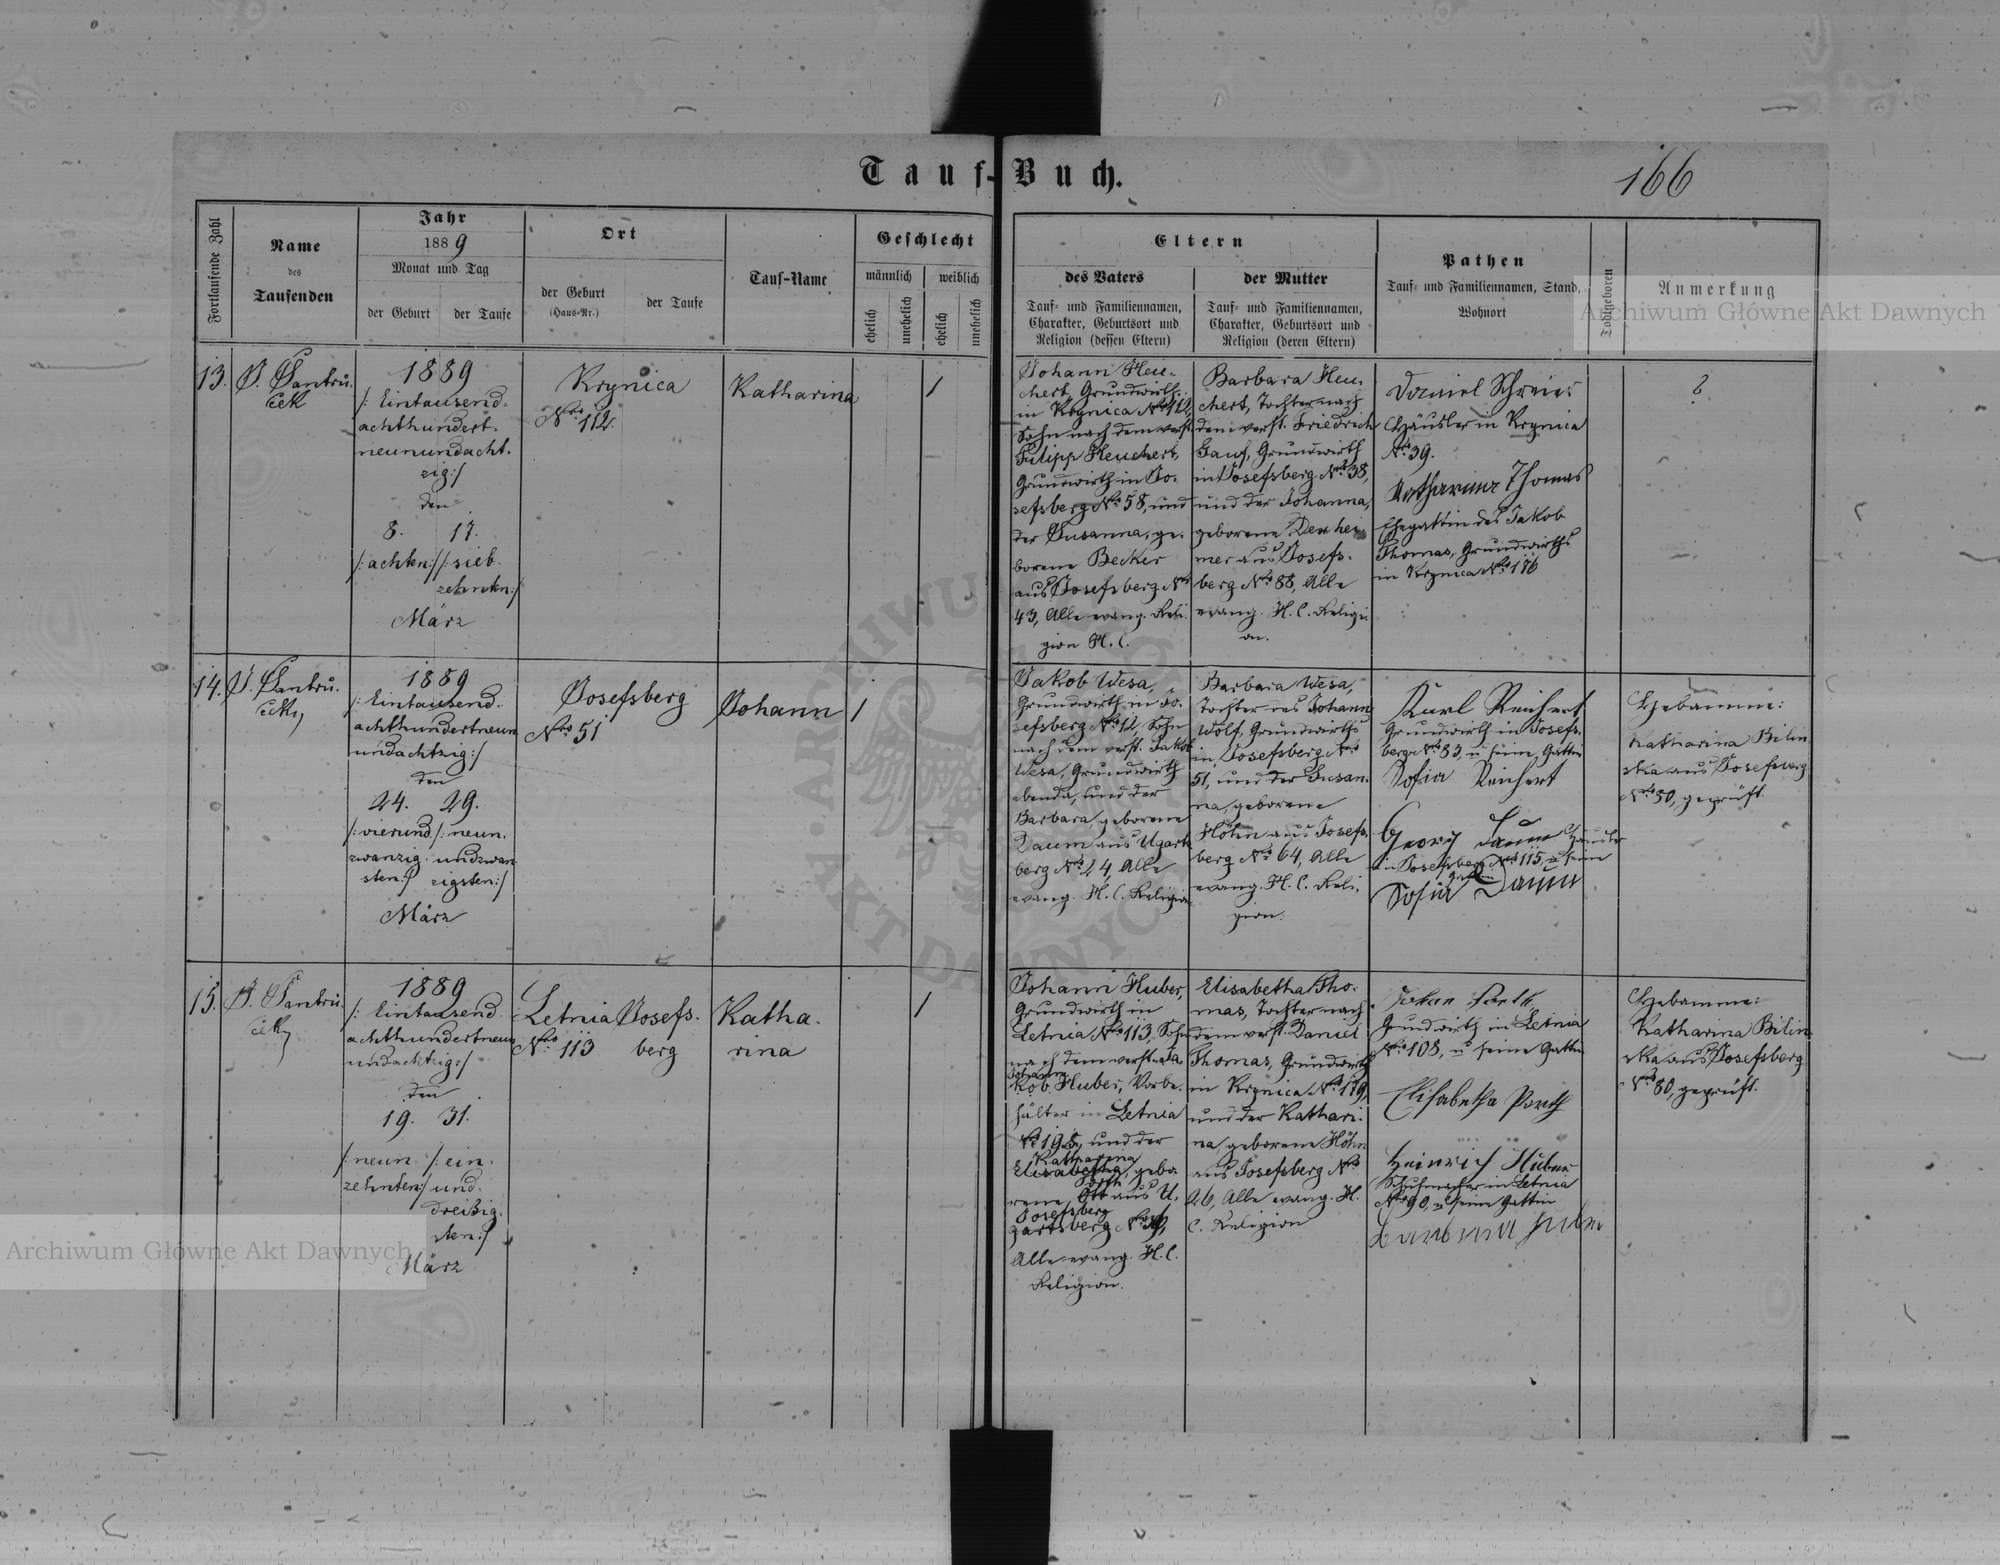 Tauf-Buch.
166
Fortlaufende Zahl
Name
des
Taufenden
Jahr
1889
Monat und Tag
der Geburt
der Taufe
Ort
der Geburt
(Haus-Nr.)
der Taufe
Tauf-Name
Geschlecht
männlich
weiblich
ehelich
unehelich
ehelich
unehelich
Eltern
des Vaters
Tauf- und Familiennamen,
Charakter, Geburtsort und
Religion (dessen Eltern)
der Mutter
Tauf- und Familiennamen,
Charakter, Geburtsort und
Religion (deren Eltern)
Pathen
Tauf- und Familiennamen, Stand,
Wohnort
Todtgeboren
Anmerkung
13.
J. Jantru.
ček
1889
/: Eintausend-
achthundert-
neunundacht-
zig:/
den
8. 17.
/: achten:/ /: sieb-
zehnten:/
März
Krynica
Nro 112.
Katharina
1
Johann Heu-
chert, Grundwirth
in Krynica Nro 112,
Sohn nach dem verst.
Filipp Heuchert,
Grundwirth in Jo-
sefsberg Nro 58, und
der Susanna, ge-
borene Becker
aus Josefsberg Nro
43, Alle evang. Reli-
gion H. C.
Barbara Heu-
chert, Tochter nach
dem verst. Friedrich
Jauf, Grundwirth
in Josefsberg Nro 38,
und der Johanna,
geborene Dexhei-
mer aus Josefs-
berg Nro 88, Alle
evang. H. C. Religi-
on.
Daniel Schreier
Häusler in Krynica
Nro 39.
Katharina Thomas
Ehegattin des Jakob
Thomas, Grundwirths
in Krynica Nro 176
?
14.
J. Jantru.
čeky
1889
/: Eintausend-
achthundertneun
undachtzig:/
den
24. 29.
/: vierund /: neun-
zwanzig- undzwan
sten:/ zigsten:/
März
Josefsberg
Nro 51
Johann
1
Jakob Wesa,
Grundwirth in Jo-
sefsberg Nro 12, Sohn
nach dem verst. Jakob
Wesa, Grundwirth
ebenda, und der
Barbara, geborene
Daum aus Ugarts
berg Nro 14, Alle
evang. H. C. Religion
Barbara Wesa,
Tochter des Johann
Wolf, Grundwirths
in Josefsberg Nro
51, und der Susan-
na, geborene
Höhn aus Josefs-
berg Nro 64, Alle
evang. H. C. Reli-
gion.
Karl Reichert
Grundwirth in Josefs-
berg Nro 83, u seine Gattin
Sofia Reichert
Georg Daum Häusler
in Josefsberg Nro 115, u seine
Gattin
Sofia Daum
Hebamme:
Katharina Bilin
ska aus Josefsberg
Nro 80, geprüft.
15.
J. Jantru.
čeky
1889
/: Eintausend
achthundertneun
undachtzig:/
den
19. 31.
/: neun- /: ein-
zehnten:/ und-
dreißig-
sten:/
März
Letnia
Nro 113
Josefs-
berg
Katha-
rina
1
Johann Huber,
Grundwirth in
Letnia Nro 113, Sohn
nach dem verst. Ja-
Johann
kob Huber, Vorbe-
hälter in Letnia
Nro 195, und der
Katharina
Elisabetha gebo-
rene Ott aus U-
Josefsberg
gartsberg
Alle evang. H. C.
Religion.
Elisabetha Tho-
mas, Tochter nach
dem verst. Daniel
Thomas, Grundwirth
in Krynica Nro 179,
und der Kathari-
na, geborene Höhn
aus Josefsberg Nro
26, Alle evang. H.
C. Religion
Grundwirth in Letnia
Nro 108, u seine Gattin
Elisabetha Porth
Heinrich Huber
Schuhmacher in Letnia
Nro 90, u seine Gattin
Hebamme:
Katharina Bilin
ska aus Josefsberg
Nro 80, geprüft.
Archiwum Główne Akt Dawnych
Archiwum Główne Akt Dawnych